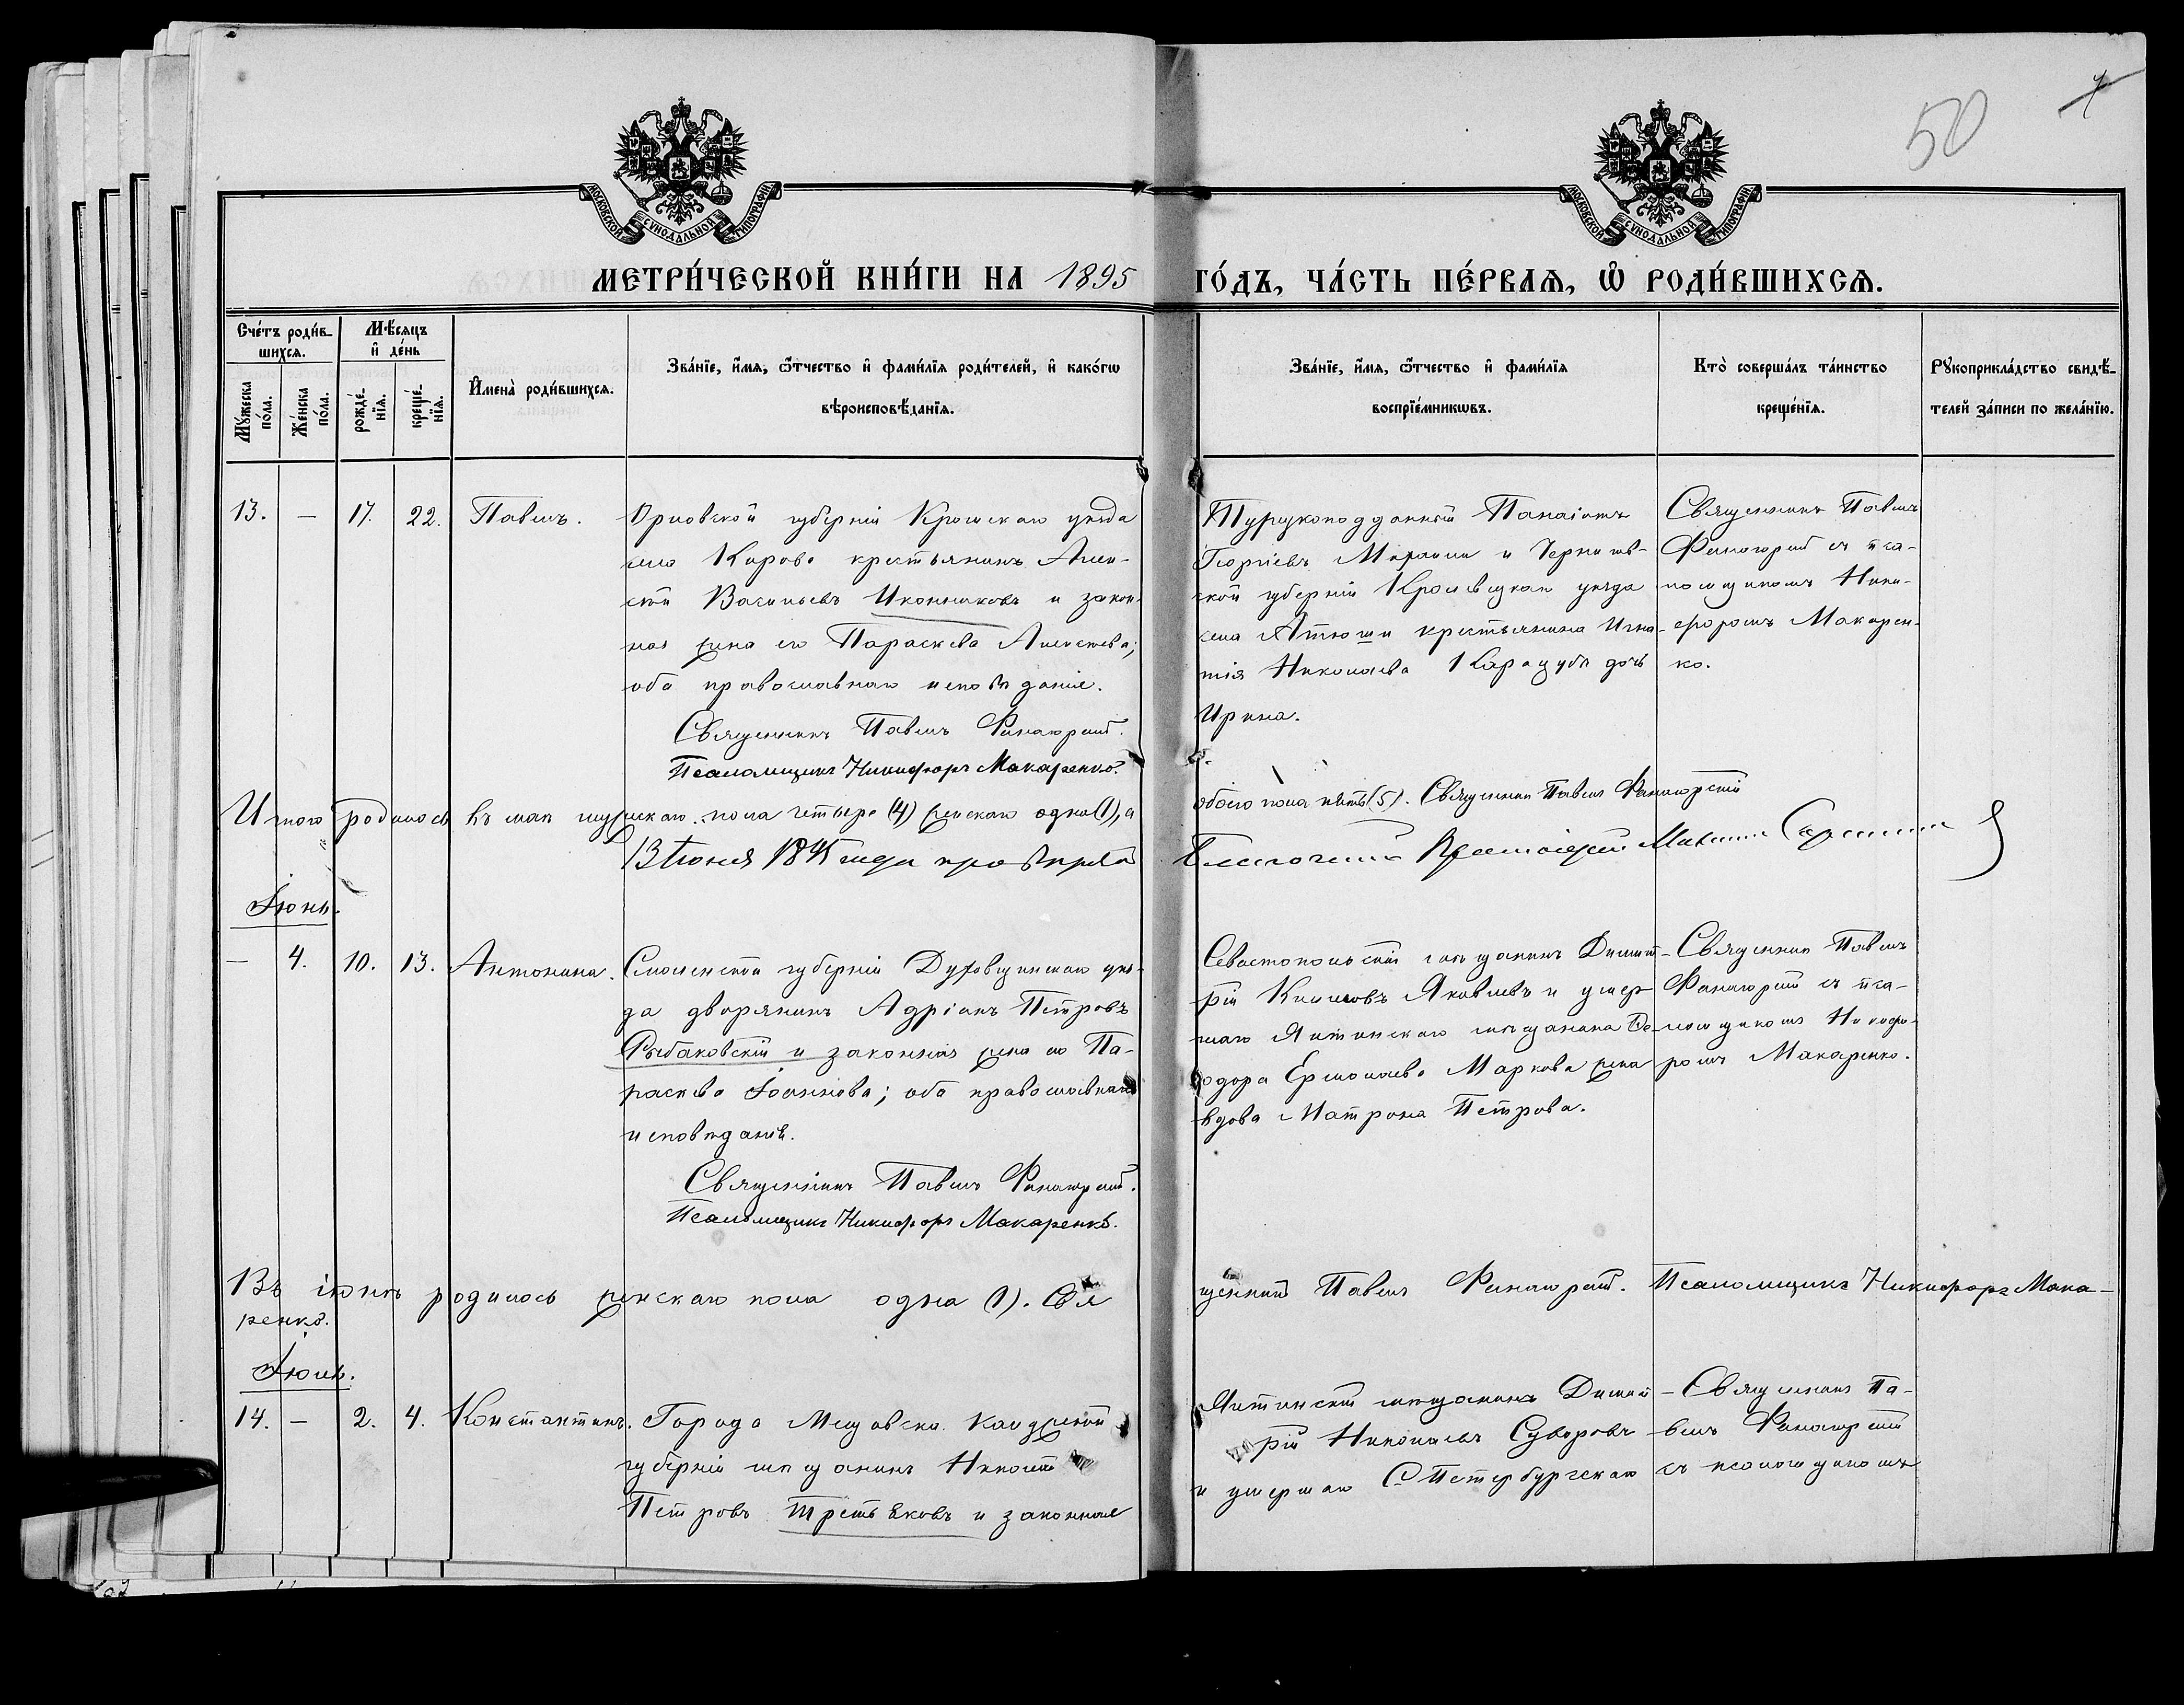 50
1
МОСКОВСКОЙ СѴНОДАЛЬНОЙ ТИПОГРАФІИ
МОСКОВСКОЙ СѴНОДАЛЬНОЙ ТИПОГРАФІИ
МЕТРИ́ЧЕСКОЙ КНИ́ГИ НА 1895 ГО́ДЪ, ЧА́СТЬ ПЕ́РВАѦ, Ѽ РОДИ́ВШИХСѦ.
Сче́тъ роди́в-
шихсѧ.
Мꙋ́жеска по́ла.
Же́нска по́ла.
Мѣ́сяцъ
и҆ де́нь
рожде́-
нїѧ.
креще́-
нїѧ.
И҆мена̀ роди́вшихсѧ.
Зва́нїе, и҆́мѧ, ѻ҆́тчество и҆ фами́лїѧ роди́телей, и҆ како́гѡ
вѣроисповѣ́данїѧ.
Зва́нїе, и҆́мѧ, ѻ҆́тчество и҆ фами́лїѧ
воспрїе́мникѡвъ.
Кто̀ соверша́лъ та́инство
креще́нїѧ.
Рꙋкоприкла́дство свидѣ́-
телей за́писи по жела́нїю.
13. — 17. 22. Павелъ.
Орловской губерніи Кромскаго уѣзда
село Карово крестьянинъ Алек-
сѣй Васильевъ Иконниковъ и закон-
ная жена его Параскева Алексѣева;
оба православнаго исповѣданія.
Священникъ Павелъ Фанагорскій.
Псаломщикъ Никифоръ Макаренко.
Турецкоподданный Панаіотъ
Георгіевъ и Чернигов-
ской губерніи Кролевецкаго уѣзда
села Атюши крестьянина Игна-
тія Николаева Карацуба дочь
Ирина.
Священникъ Павелъ
Фанагорскій съ пса-
ломщикомъ Ники-
форомъ Макарен-
ко.
Итого родилось въ маѣ мужскаго пола четыре (4) женскаго одна (1), а
обоего пола пять (5). Священникъ Павелъ Фанагорскій
13 Іюня 1895 года провѣрялъ
Благочинный Протоіерей
Іюнь.
— 4. 10. 13. Антонина.
Смоленской губерніи Духовщинскаго уѣз-
да дворянинъ Адріанъ Петровъ
Рыбаковскій и законная жена его Па-
раскева Іоаннова; оба православнаго
исповѣданія.
Священникъ Павелъ Фанагорскій.
Псаломщикъ Никифоръ Макаренко.
Севастопольскій мѣщанинъ Димит-
рій Яковлевъ и умер-
шаго Ялтинскаго мѣщанина Ѳе-
одора Ермолаева Маркова жена
вдова Матрона Петрова.
Священникъ Павелъ
Фанагорскій съ пса-
ломщикомъ Никифо-
ромъ Макаренко.
Въ іюнѣ родилось женскаго пола одна (1). Свя
щенникъ Павелъ Фанагорскій. Псаломщикъ Никифоръ Мака-
ренко.
Іюль.
14. — 2. 4. Константинъ.
Города Мещовска Калужской
губерніи мѣщанинъ Николай
Петровъ Третьяковъ и законная
Ялтинскій мѣщанинъ Димит-
рій Николаевъ Суворовъ
и умершаго СПетербургскаго
Священникъ Па-
велъ Фанагорскій
съ псаломщикомъ